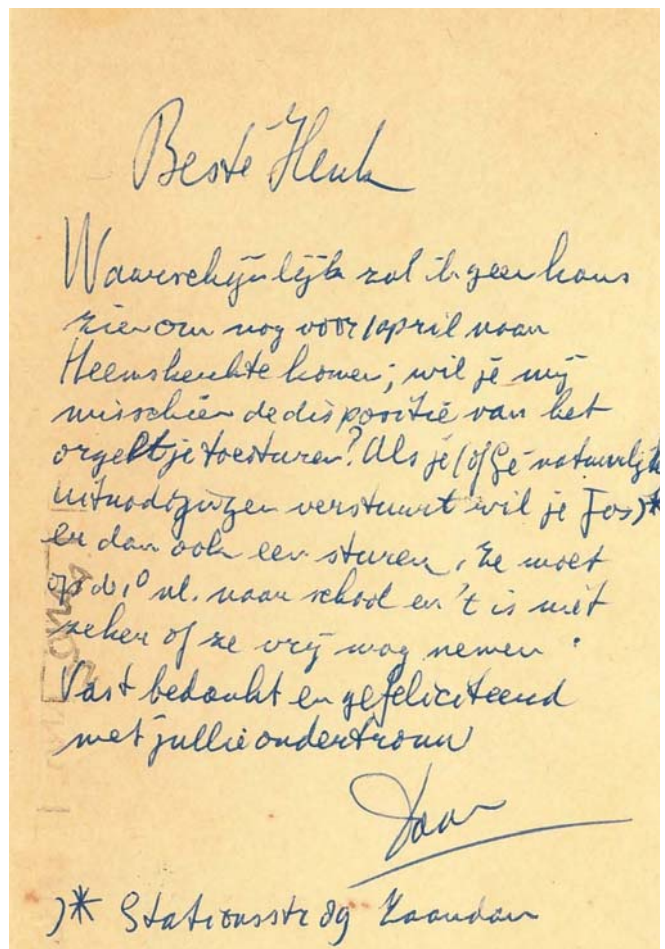 Beste Henk
Waarschijnlijk zal ik geen kans
zien om nog voor 1 april naar
Heemskerk te komen; wil je mij
misschien de dispositie van het
orgeltje toesturen? Als je (of Gé natuurlijk
uitnodigingen verstuurt wil je Jos)*
er dan ook een sturen. Ze moet
nl. naar school en 't is niet
zeker of ze vrij mag nemen.
Vast bedankt en gefeliciteerd
met jullie ondertrouw
Daan
)* Stationsstr 89 Zaandam